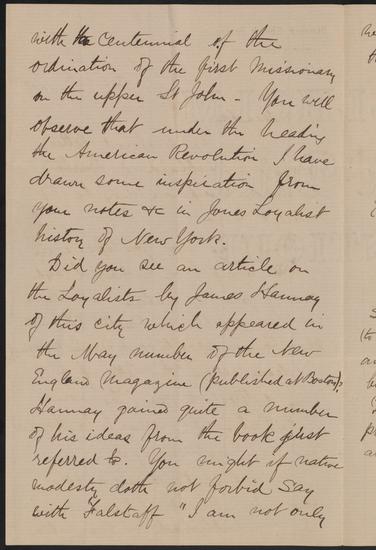 with the Centennial of the
ordination of the first Missionary
on the upper St John - You will
observe that under the heading
the American Revolution I have
drawn some inspiration from
your notes &c in Jones Loyalist
history of New York.
Did you see an article on
the Loyalists by James Hannay
of this city which appeared in
the May number of the New
England Magazine (published at Boston)?
Hannay gained quite a number
of his ideas from the book just
referred to. You might if native
modesty doth not forbid say
with Falstaff "I am not only